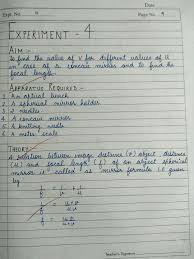 Date
Expt. No. 4
Page No. 4
EXPERIMENT - 4
AIM :-
To find the value of v for different values of u
in case of a concave mirror and to find the
focal length.
APPARATUS REQUIRED :-
1 An optical bench
2 A spherical mirror holder
3 2 needles
4 A concave mirror
5 A knitting needle
6 A meter scale
THEORY :-
A relation between image distance (v) object distance
(u) and focal length (f) of an object spherical
mirror is called as 'mirror formula' i.e given
by
1/f = 1/v + 1/u
1/f = u+v/uv
f = uv/u+v
Teacher's Signature